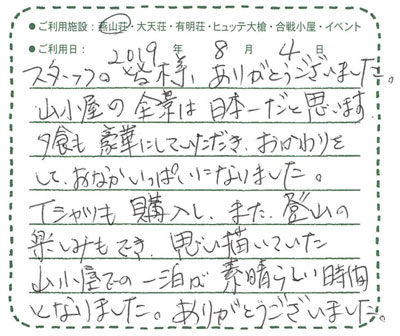 ●ご利用施設：燕山荘・大天荘・有明荘・ヒュッテ大槍・合戦小屋・イベント
●ご利用日： 2019 年 8 月 4 日
スタッフの皆様、ありがとうございました。
山小屋の全景は日本一だと思います。
夕食も豪華にしていただき、おかわりを
して、おなかいっぱいになりました。
Tシャツも購入し、また、登山の
楽しみもでき、思い描いていた
山小屋での一泊が素晴らしい時間
となりました。ありがとうございました。